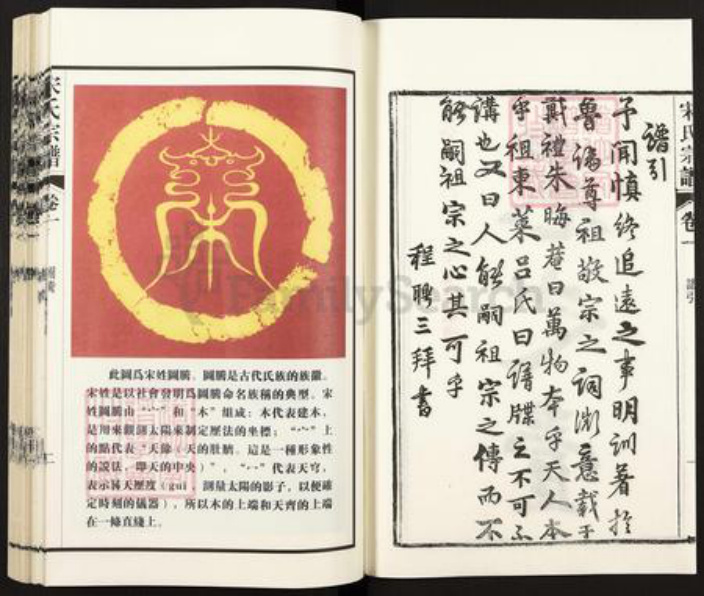 宋氏宗譜
卷一
此圖爲宋姓圖騰。圖騰是古代氏族的族徽。
宋姓是以社會發明爲圖騰命名族稱的典型。宋
姓圖騰由“宀”和“木”組成：木代表建木，
是用來觀測太陽來制定歷法的坐標；“宀”上
的點代表“天臍（天的肚臍，這是一種形象性
的說法，即天的中央）”，“冖”代表天穹，
表示晷天歷度（gui，測量太陽的影子，以便確
定時刻的儀器），所以木的上端和天齊的上端
在一條直綫上。
宋氏宗譜
卷一
譜引
譜引
予聞慎終追遠之事明訓著於
魯論尊祖敬宗之詞微意載于
戴禮朱晦菴曰萬物本乎天人本
乎祖東萊呂氏曰譜牒之不可不
講也又曰人能嗣祖宗之傳而不
能嗣祖宗之心其可乎
程聘三拜書
FamilySearch